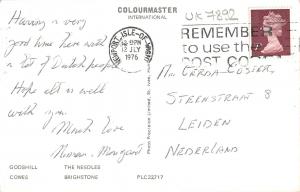 COLOURMASTER
INTERNATIONAL
UK-4892
NEWPORT, ISLE-OF-WIGHT
PM
12 JLY
1976
REMEMBER
to use the
POST CODE
Having a very
good time here with
a lot of Dutch people
Hope all is well
with you.
Much love
Photo Precision Limited, St. Ives,
GERDA
STEENSTRAAT 8
LEIDEN
NEDERLAND
GODSHILL THE NEEDLES
COWES BRIGHSTONE PLC22717